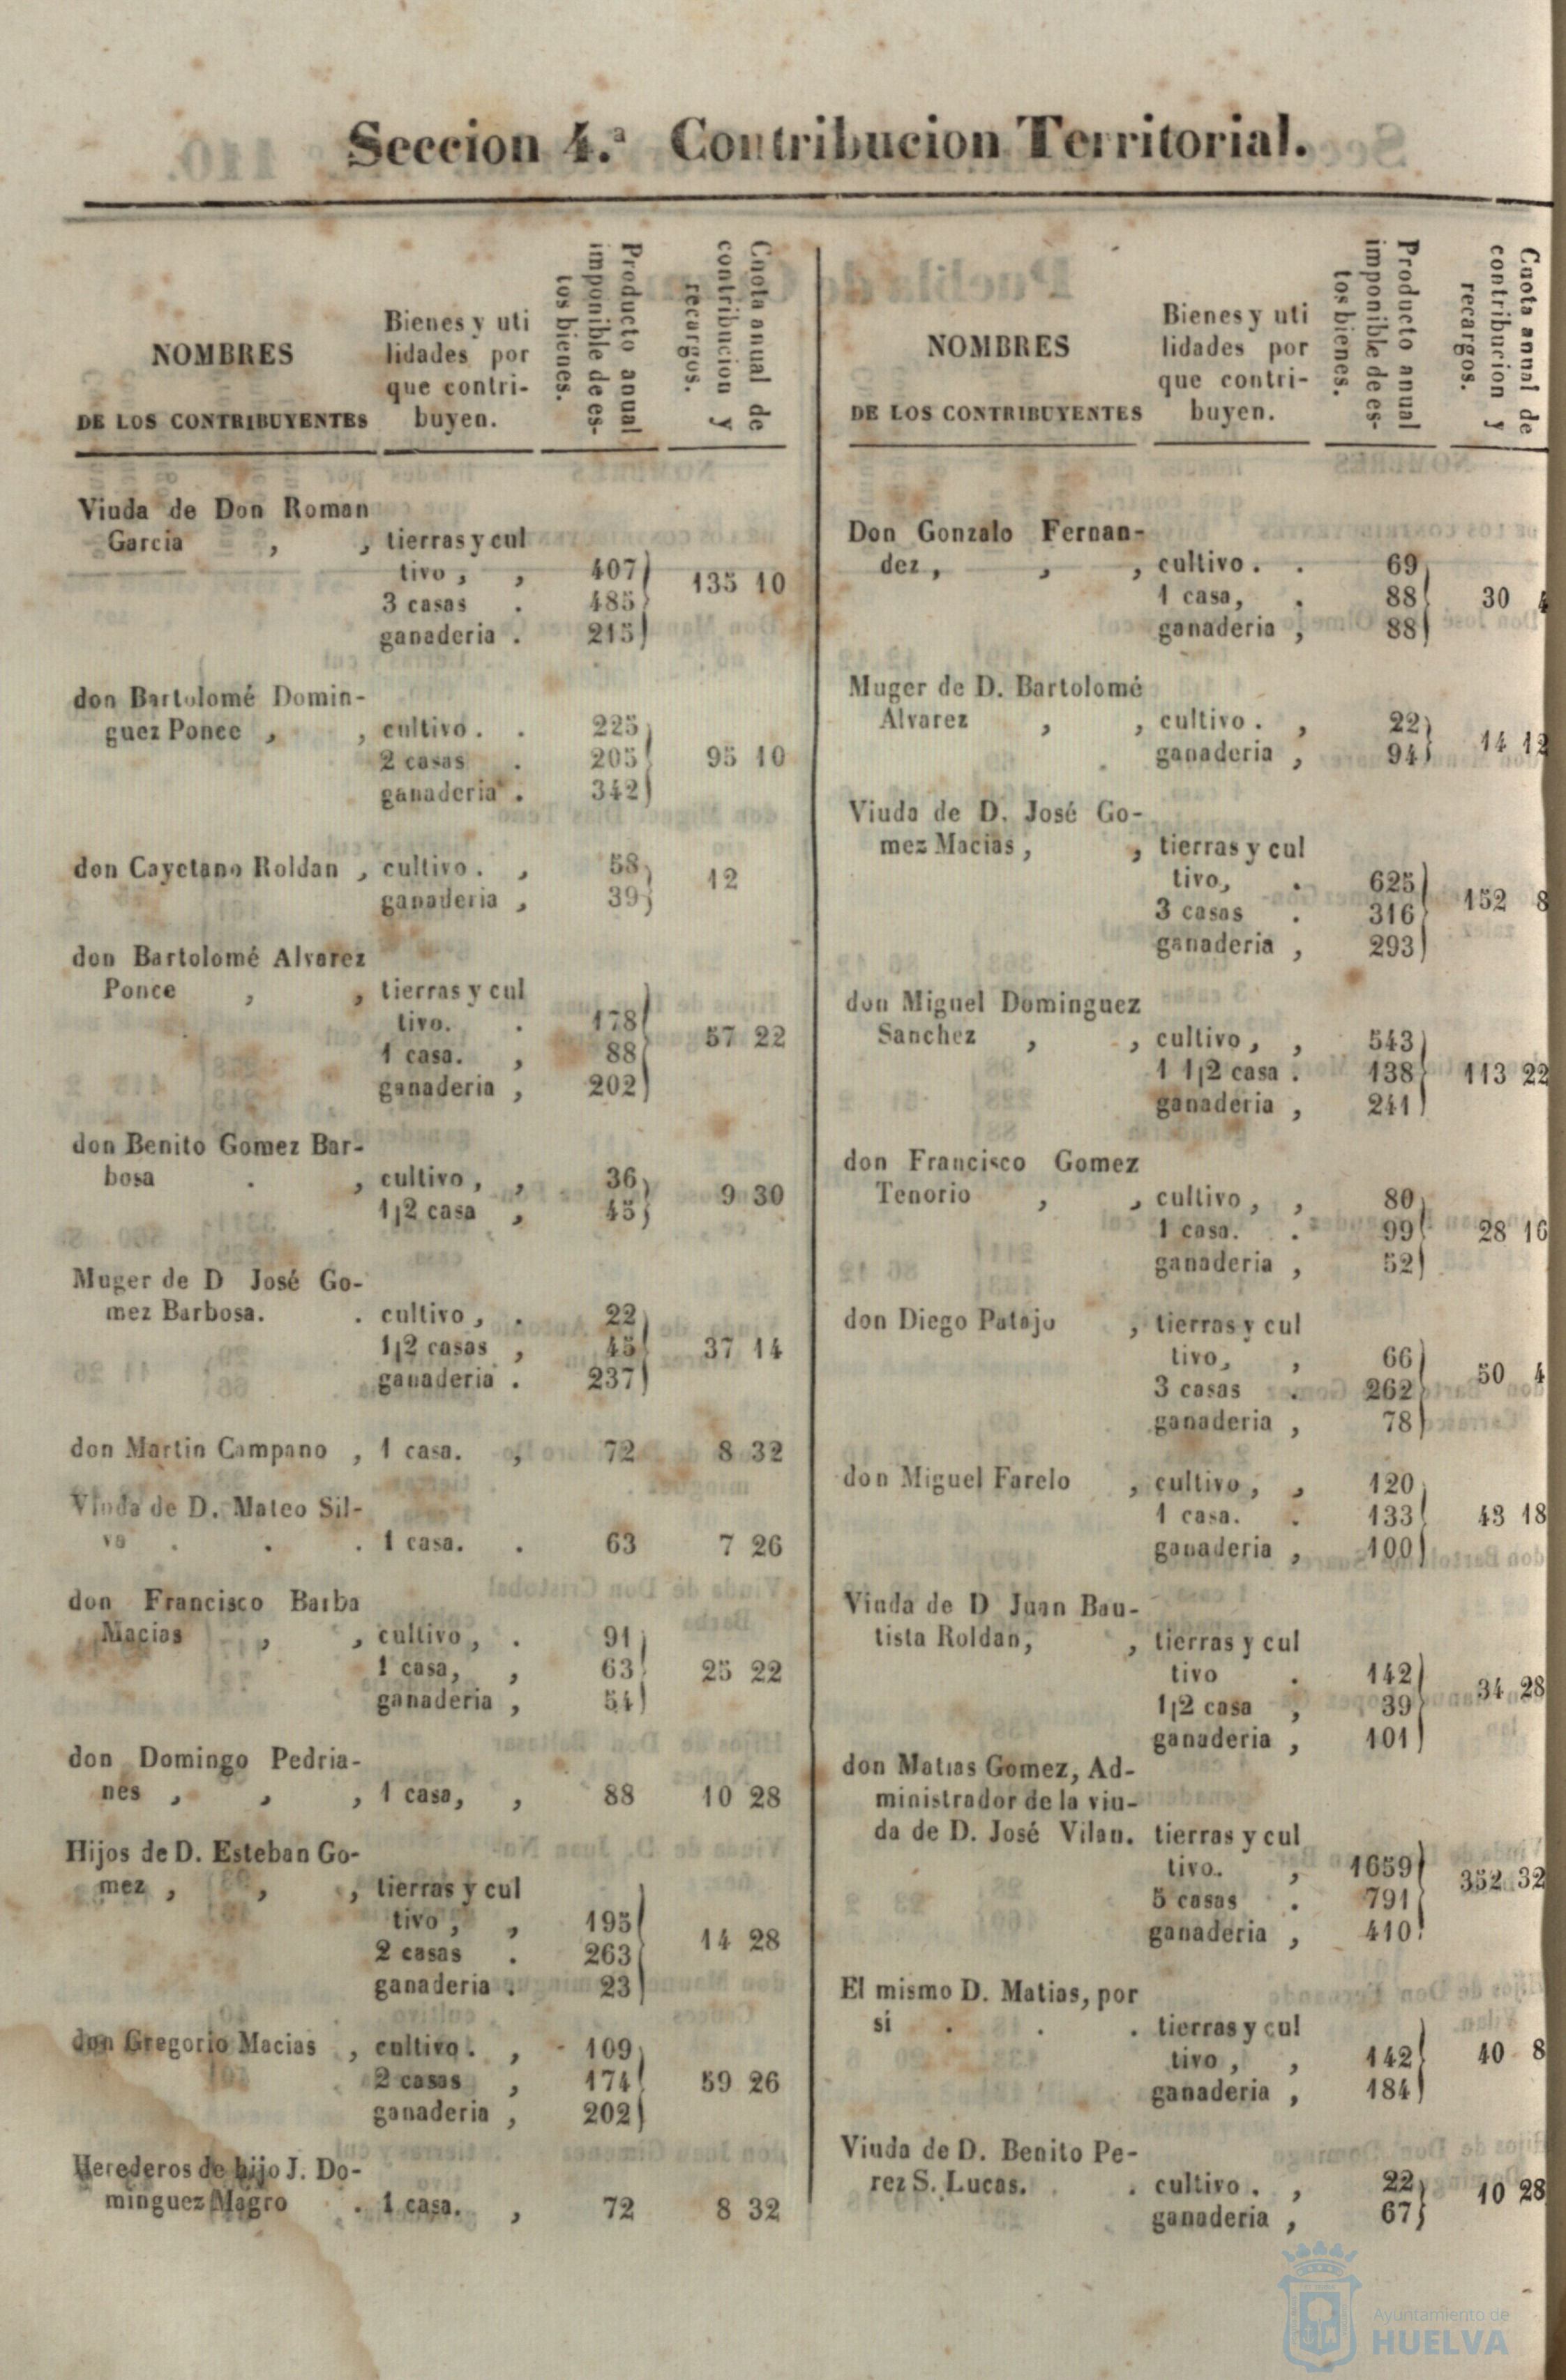 Seccion 4.ª Contribucion Territorial.
NOMBRES
DE LOS CONTRIBUYENTES
Bienes y uti
lidades por
que contri-
buyen.
Producto anual
imponible de es-
tos bienes.
Cuota anual de
contribucion y
recargos.
Viuda de Don Roman
Garcia , , tierras y cul
tivo , , 407
3 casas . 485 135 10
ganaderia . 215
don Bartolomé Domin-
guez Ponce , , cultivo . . 225
2 casas . 205 95 10
ganaderia . 342
don Cayetano Roldan , cultivo . , 58
ganaderia , 39 12
don Bartolomé Alvarez
Ponce , , tierras y cul
tivo. . 178
1 casa. , 88 57 22
ganaderia , 202
don Benito Gomez Bar-
bosa . , cultivo , , 36
1|2 casa , 45 9 30
Muger de D José Go-
mez Barbosa. . cultivo , . 22
1|2 casas , 45 37 14
ganaderia . 237
don Martin Campano , 1 casa. , 72 8 32
Viuda de D. Mateo Sil-
va . . . 1 casa. . 63 7 26
don Francisco Barba
Macias , , cultivo , . 91
1 casa, , 63 25 22
ganaderia , 54
don Domingo Pedria-
nes , , , 1 casa, , 88 10 28
Hijos de D. Esteban Go-
mez , , , tierras y cul
tivo , , 195
2 casas . 263 14 28
ganaderia . 23
don Gregorio Macias , cultivo . , 109
2 casas , 174 59 26
ganaderia , 202
Herederos de hijo J. Do-
minguez Magro . 1 casa. , 72 8 32
NOMBRES
DE LOS CONTRIBUYENTES
Bienes y uti
lidades por
que contri-
buyen.
Producto anual
imponible de es-
tos bienes.
Cuota anual de
contribucion y
recargos.
Don Gonzalo Fernan-
dez , , , cultivo . . 69
1 casa, . 88 30 4
ganaderia , 88
Muger de D. Bartolomé
Alvarez , , cultivo . , 22
ganaderia , 94 14 12
Viuda de D. José Go-
mez Macias , , tierras y cul
tivo, . 625
3 casas . 316 152 8
ganaderia , 293
don Miguel Dominguez
Sanchez , , cultivo , , 543
1 1|2 casa . 138 113 22
ganaderia , 241
don Francisco Gomez
Tenorio , , cultivo , , 80
1 casa. . 99 28 16
ganaderia , 52
don Diego Patajo , tierras y cul
tivo, , 66
3 casas . 262 50 4
ganaderia , 78
don Miguel Farelo , cultivo , , 120
1 casa. . 133 43 18
ganaderia , 100
Viuda de D Juan Bau-
tista Roldan, , tierras y cul
tivo . 142
1|2 casa , 39 34 28
ganaderia , 101
don Matias Gomez, Ad-
ministrador de la viu-
da de D. José Vilan. tierras y cul
tivo. , 1659
5 casas . 791 352 32
ganaderia , 410
El mismo D. Matias, por
si . . . tierras y cul
tivo , , 142 40 8
ganaderia , 184
Viuda de D. Benito Pe-
rez S. Lucas. . cultivo . , 22
ganaderia , 67 10 28
Ayuntamiento de
HUELVA